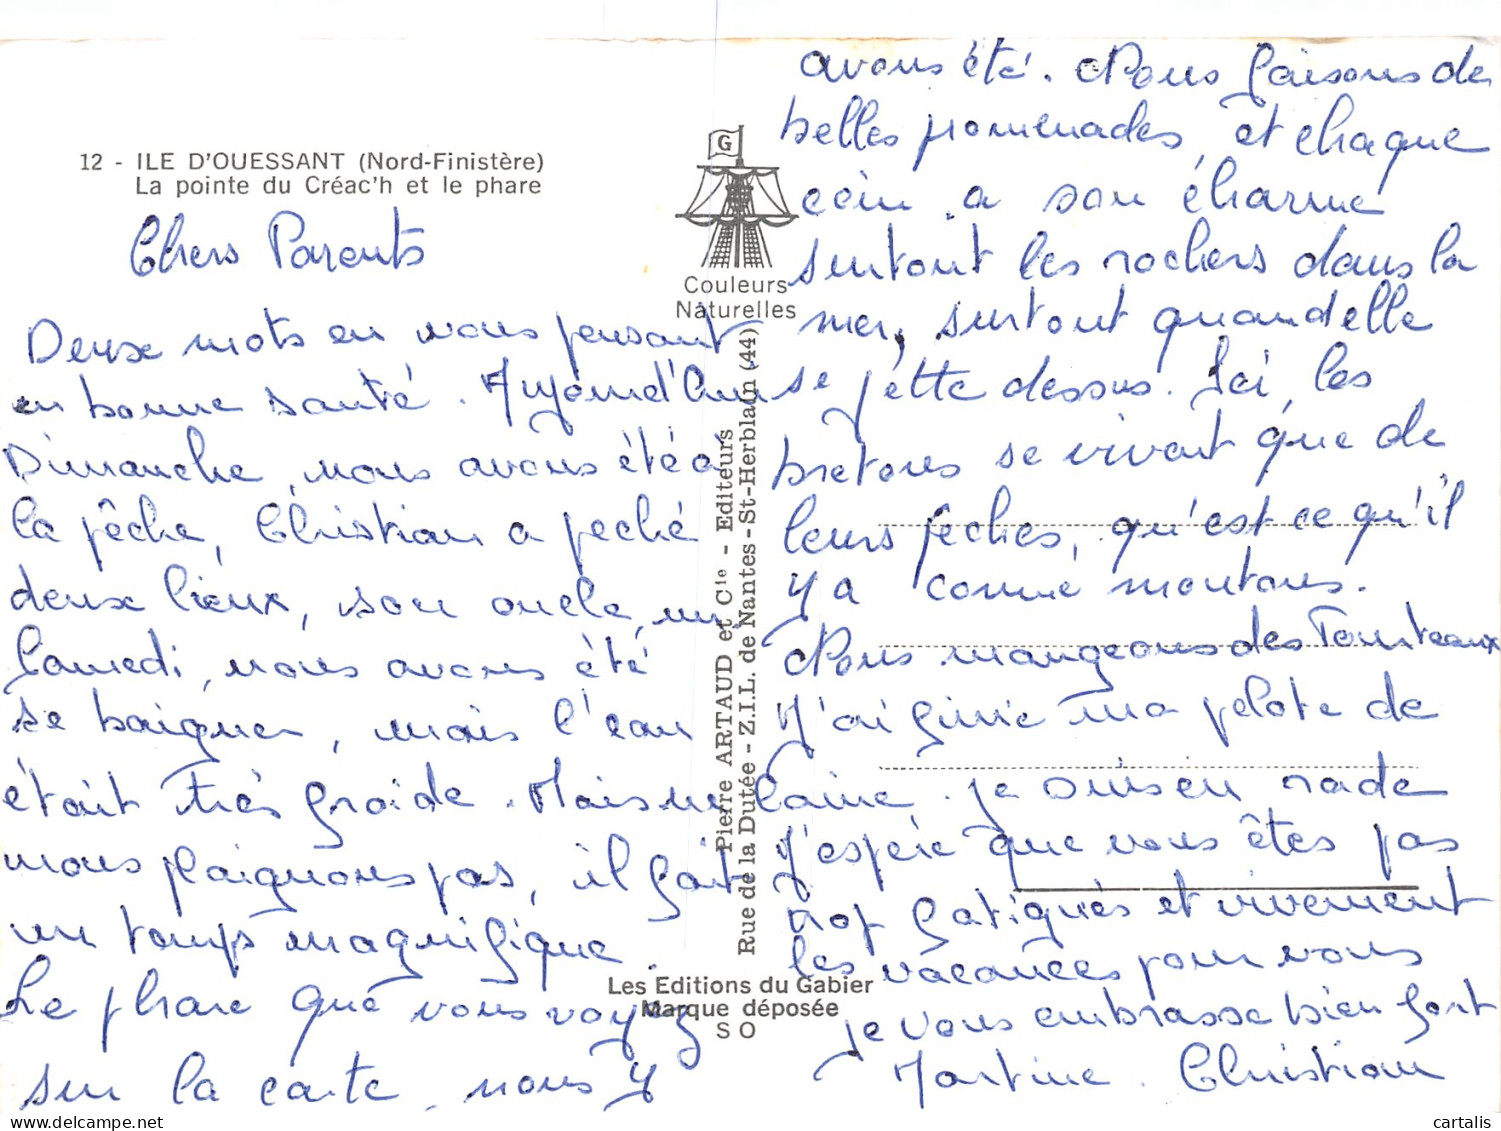 12 - ILE D'OUESSANT (Nord-Finistère)
La pointe du Créac'h et le phare
Chers Parents
Deux mots en vous pensant
en bonne santé. Aujourd'hui
Dimanche, nous avons été à
la pêche, Christian a peché
deux lieux, son oncle, un.
Samedi, nous avons été
se baigner, mais l'eau
était très froide. Mais ne
nous plaignons pas, il fait
un temps magnifique.
Le phare que vous voyez
sur la carte, nous y
avons été. Nous faisons de
belles promenades, et chaque
coin a son charme
surtout les rochers dans la
mer, surtout quand elle
se jette dessus. Ici, les
bretons se vivent que de
leurs pêches, qu'est ce qu'il
y a comme moutons.
Nous mangeons des Tourteaux
J'ai finie ma pelote de
laine. je suis en rade
J'espère que vous êtes pas
trop fatigués et vivement
les vacances pour vous
je vous embrasse bien fort
Martine. Christian
G
Couleurs
Naturelles
Pierre ARTAUD et Cie - Editeurs
Rue de la Dutée - Z.I.L. de Nantes - St-Herblain (44)
Les Editions du Gabier
Marque déposée
S O
cartalis